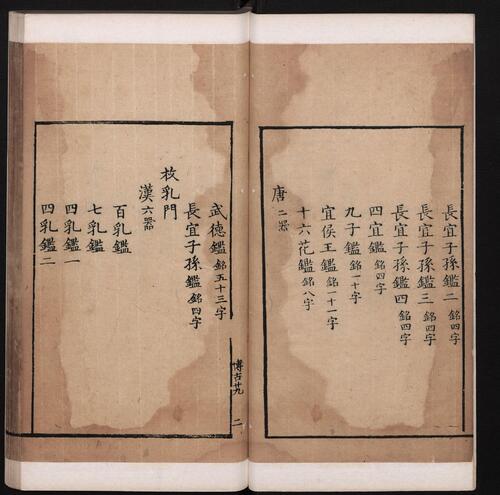 長宜子孫鑑二 銘四字
長宜子孫鑑三 銘四字
長宜子孫鑑四 銘四字
四宜鑑 銘四字
九子鑑 銘一十字
宜侯王鑑 銘一十一字
十六花鑑 銘八字
唐 二器
武德鑑 銘五十三字
長宜子孫鑑 銘四字
枚乳門
漢 六器
百乳鑑
七乳鑑
四乳鑑一
四乳鑑二
博古廿九
二